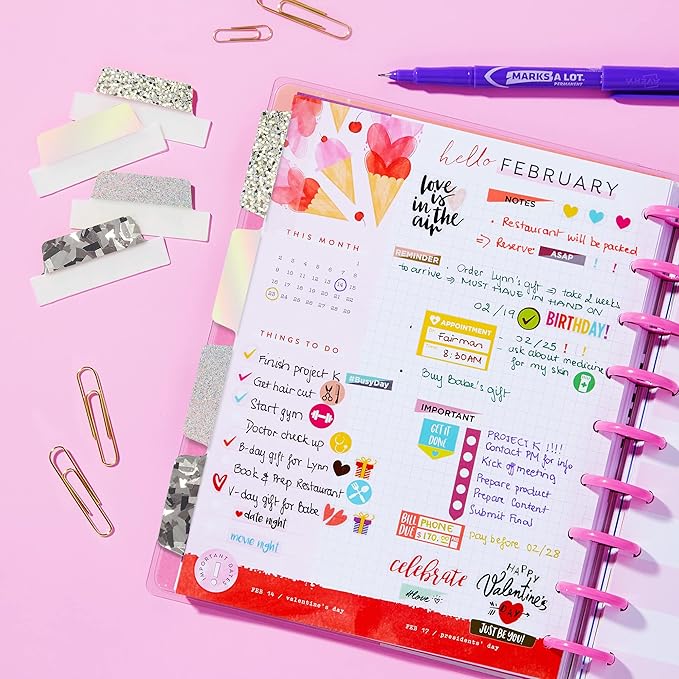 MARKS A LOT.
PERMANENT
AVERY
hello FEBRUARY
love
is in
the
air
NOTES
• Restaurant will be packed
⇒ Reserve ASAP !!
THIS MONTH
1
2 3 4 5 6 7 8
9 10 11 12 13 14 15
16 17 18 19 20 21 22
23 24 25 26 27 28 29
REMINDER
Order Lynn's gift ⇒ take 2 weeks
to arrive ⇒ MUST HAVE IN HAND ON
02/19 BIRTHDAY!
APPOINTMENT
Fairman
8:30AM
02/25 !!
- ask about medicine
for my skin
Buy Babe's gift
THINGS TO DO
Finish project K
#BusyDay
Get hair cut
Start gym
Doctor check up
B-day gift for Lynn
Book & Prep Restaurant
V-day gift for Babe
date night
movie night
IMPORTANT
GET IT
DONE
PROJECT K !!!!
Contact PM for info
Kick off meeting
Prepare product
Prepare Content
Submit Final
BILL
DUE
PHONE
$170.00
pay before 02/28
celebrate
#love
HAPPY
Valentine's
DAY
JUST BE YOU!
IMPORTANT DATES
FEB 14 / valentine's day
FEB 17 / presidents' day